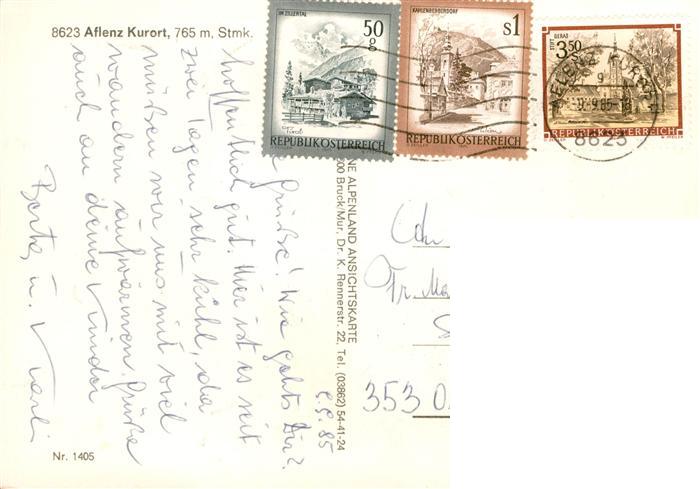 8623 Aflenz Kurort, 765 m, Stmk.
IM ZILLERTAL
50
g
Tirol
REPUBLIK ÖSTERREICH
KAHLENBERGERDORF
s1
Wien
REPUBLIK ÖSTERREICH
STIFT GERAS
3.50
REPUBLIK ÖSTERREICH
8623
NE ALPENLAND ANSICHTSKARTE
00 Bruck/Mur, Dr. K. Rennerstr. 22, Tel. (03862) 54-41-24
9.9.85
Grüße! Wie gehts Dir?
hoffentlich gut. Hier ist es seit
zwei Tagen sehr kühl, da
müßen wir uns mit viel
wandern aufwärmen. Grüße
auch an deine Kinder
Berta u. Karli
An
Fr. Ma
353
Nr. 1405